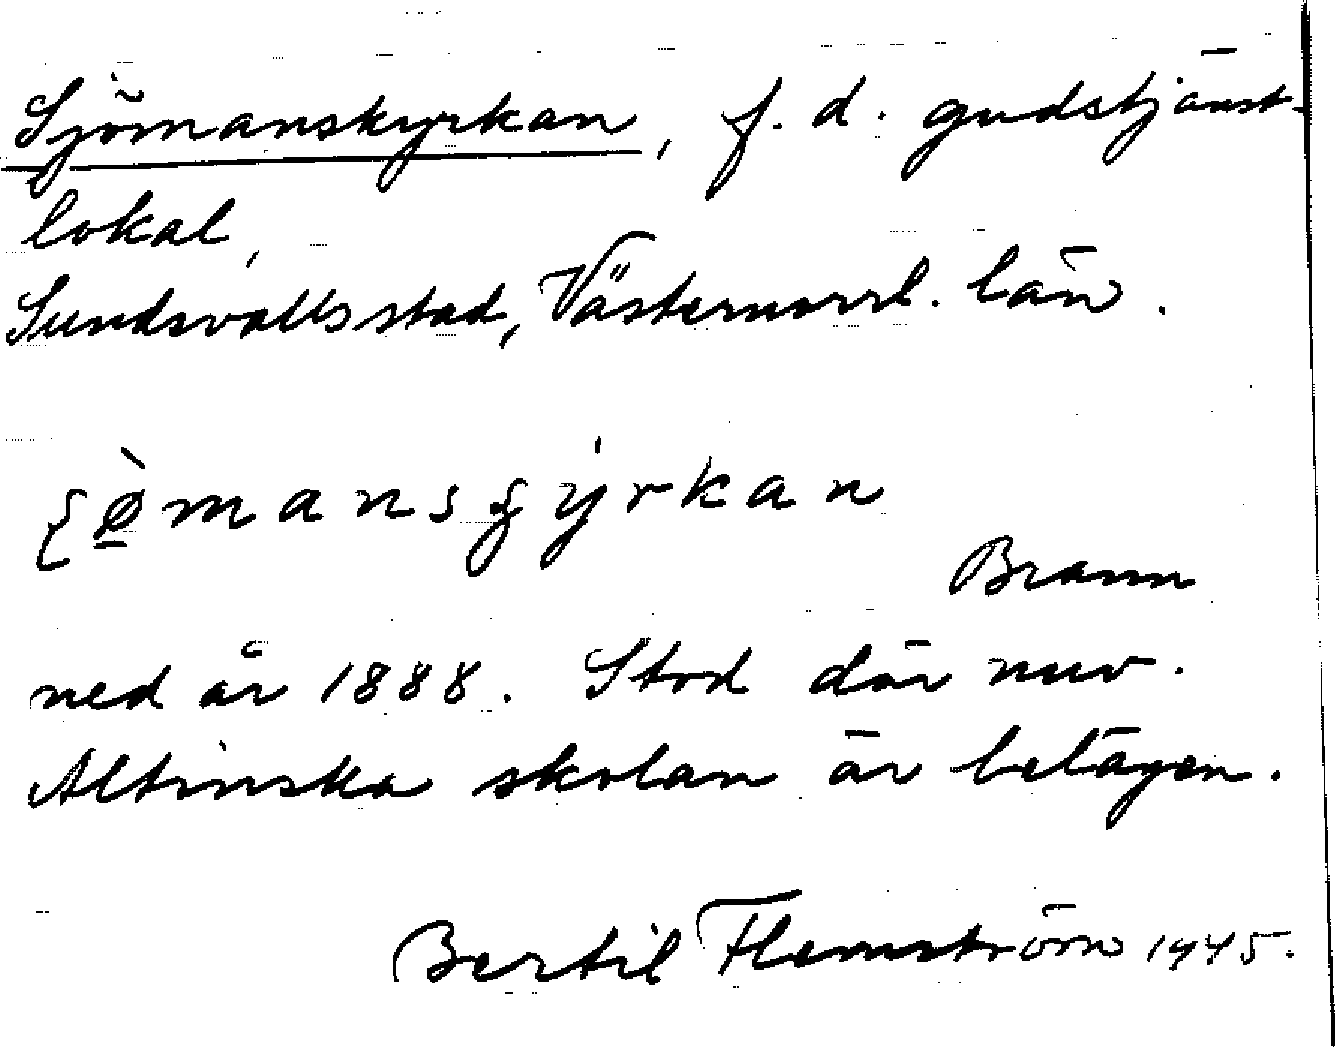 Sjömanskyrkan, f. d. gudstjänst-
lokal,
Sundsvalls stad, Västernorrl. län.
mansgýrkan
Brann
ned år 1888. Stod där nuv.
Altinska skolan är belägen.
Bertil Flemström 1945.